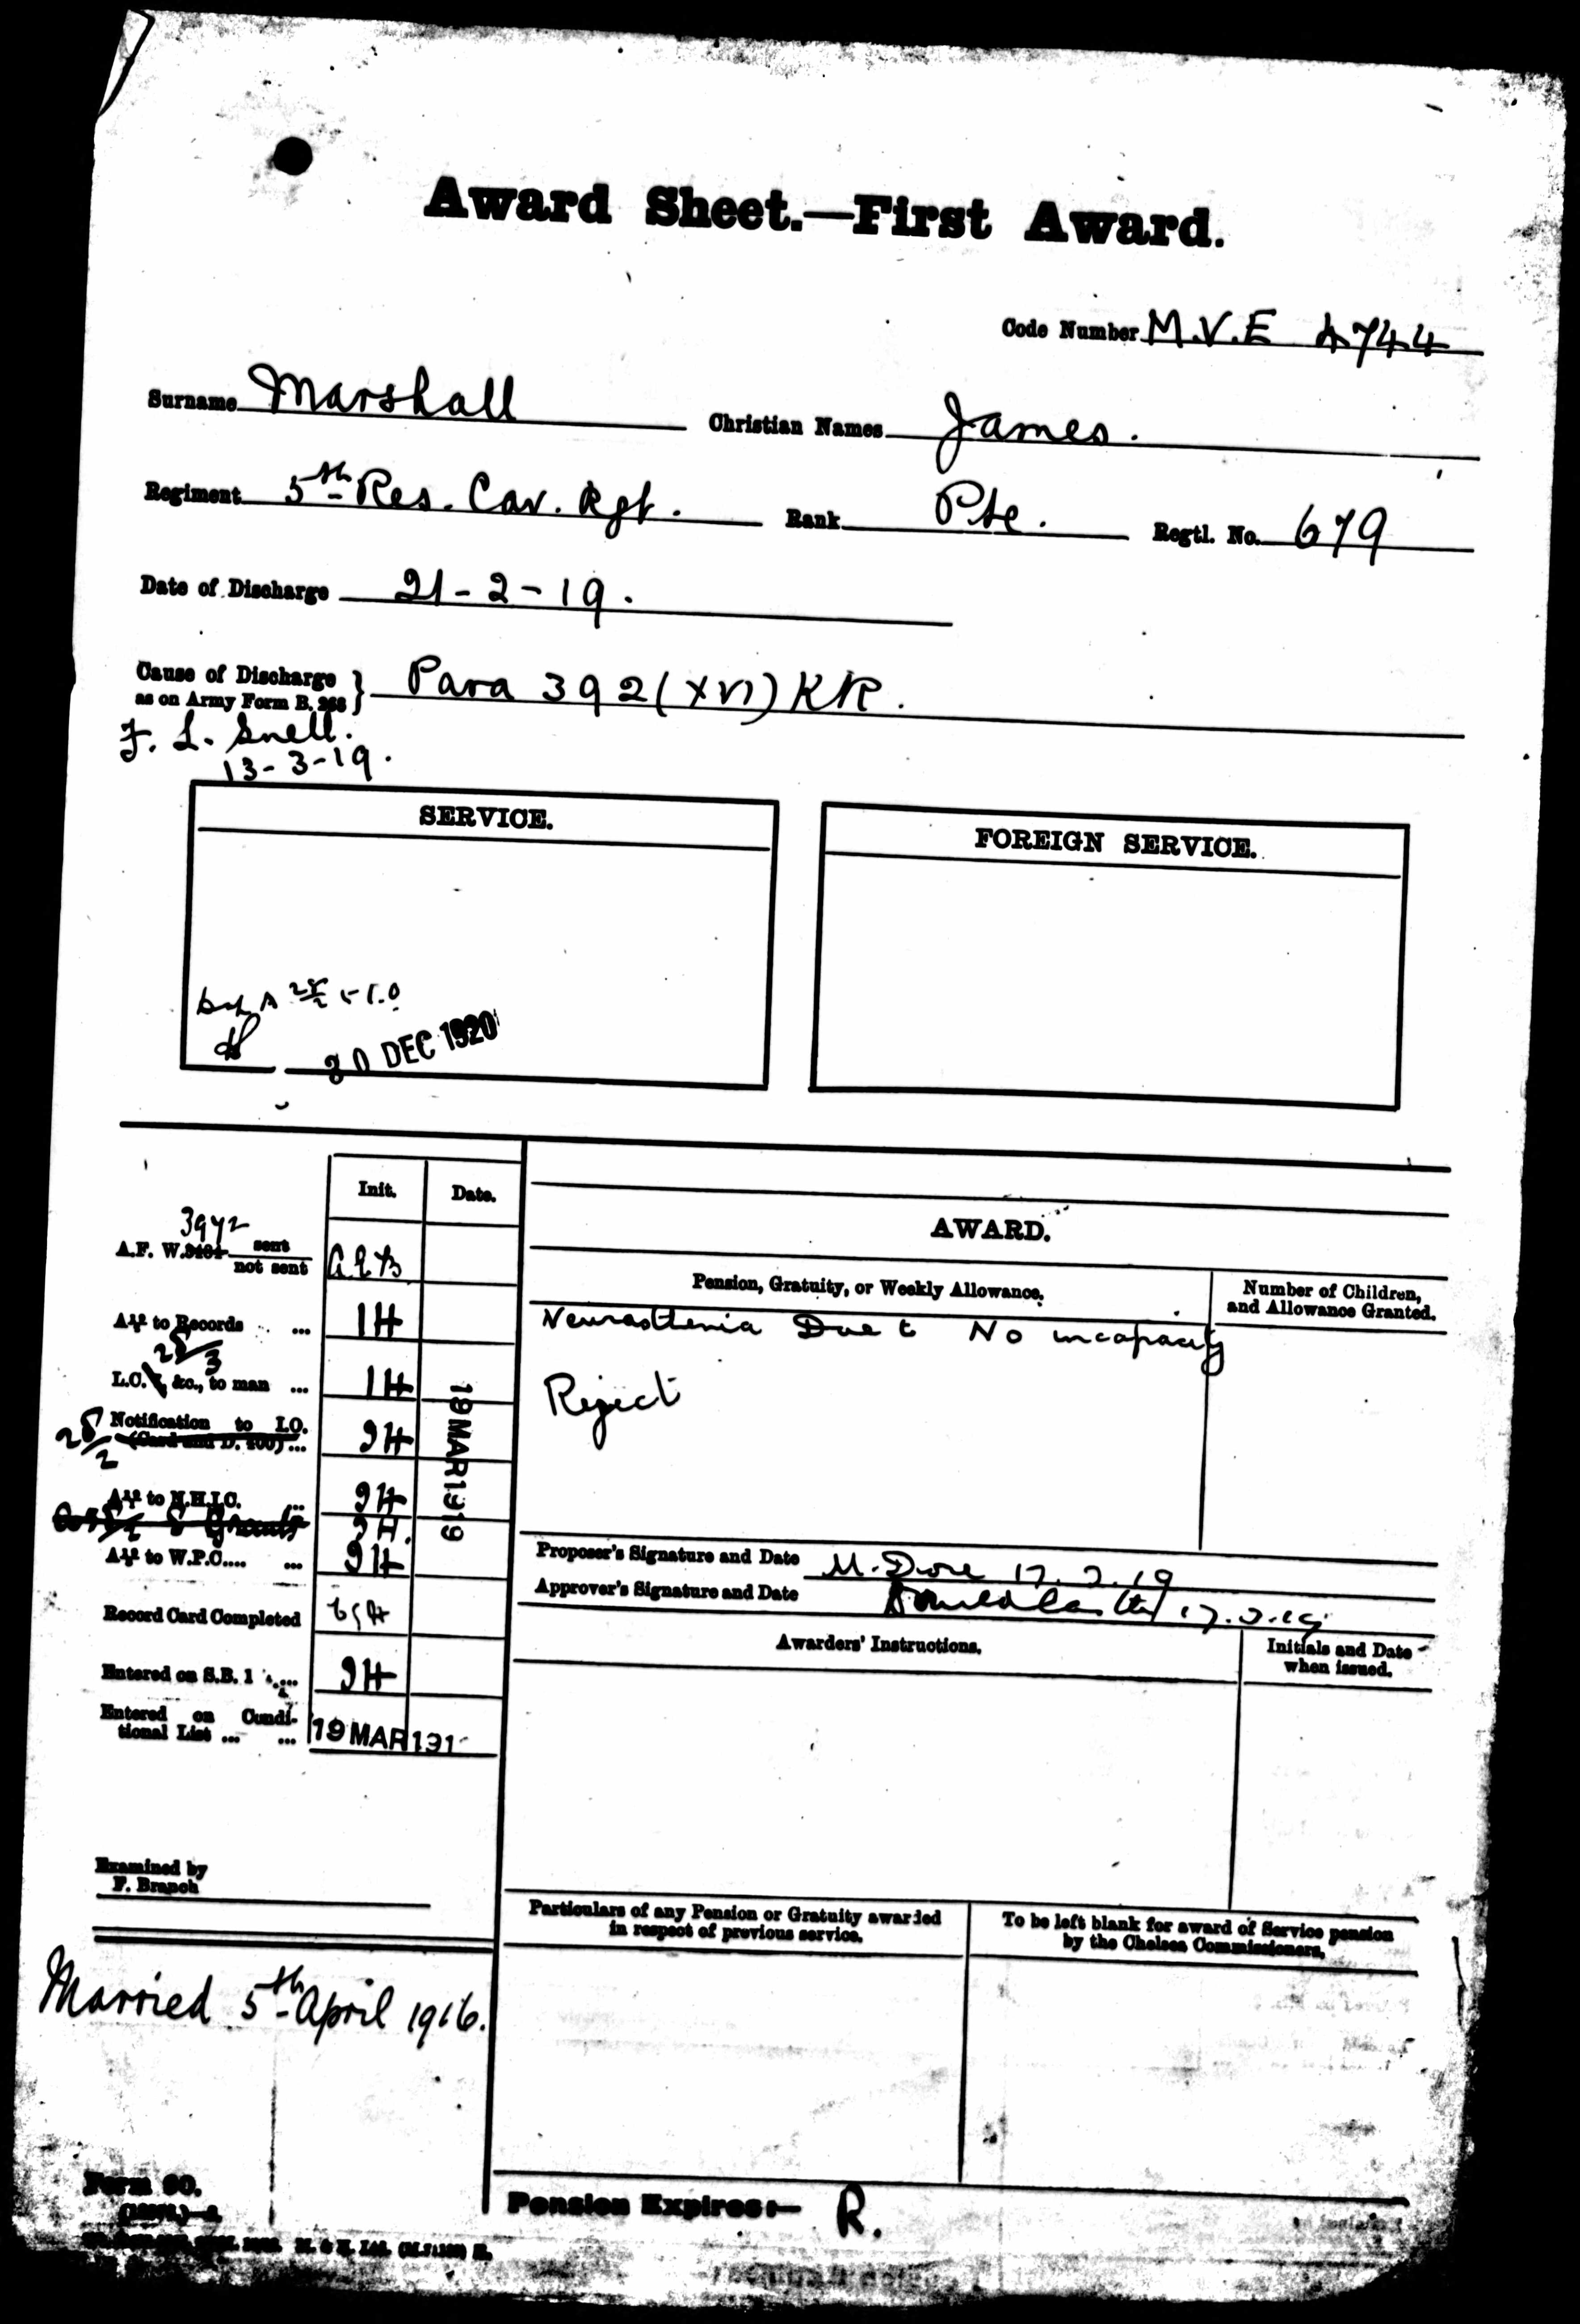 Award Sheet.—First Award.
Code Number M.V.E 4744
Surname Marshall Christian Names James.
Regiment 5th Res. Cav. Rgt. Rank Pte. Regtl. No. 679
Date of Discharge 21-2-19.
Cause of Discharge as on Army Form B. 268 } Para 392 (XVI) KR.
F. L. Snell.
13-3-19.
SERVICE.
FOREIGN SERVICE.
DEC 1920
Init. Date.
3972
A.F. W. sent
not sent
to Records ...
L.C. &c., to man ...
Notification to I.O.
28/2
19 MAR 1919
to N.H.I.C. ...
to W.P.C.... ...
Record Card Completed
Entered on S.B. 1 ...
Entered on Condi-
tional List ... ... 19 MAR 191
Examined by
F. Branch
Married 5th April 1916.
AWARD.
Pension, Gratuity, or Weekly Allowance.
Number of Children,
and Allowance Granted.
Neurasthenia Due to No incapacity
Reject
Proposer's Signature and Date M. Dore
Approver's Signature and Date
Awarders' Instructions.
Initials and Date
when issued.
Particulars of any Pension or Gratuity awarded
in respect of previous service.
To be left blank for award of Service pension
by the Chelsea Commissioners.
Pension Expires:— R.
Form 90.